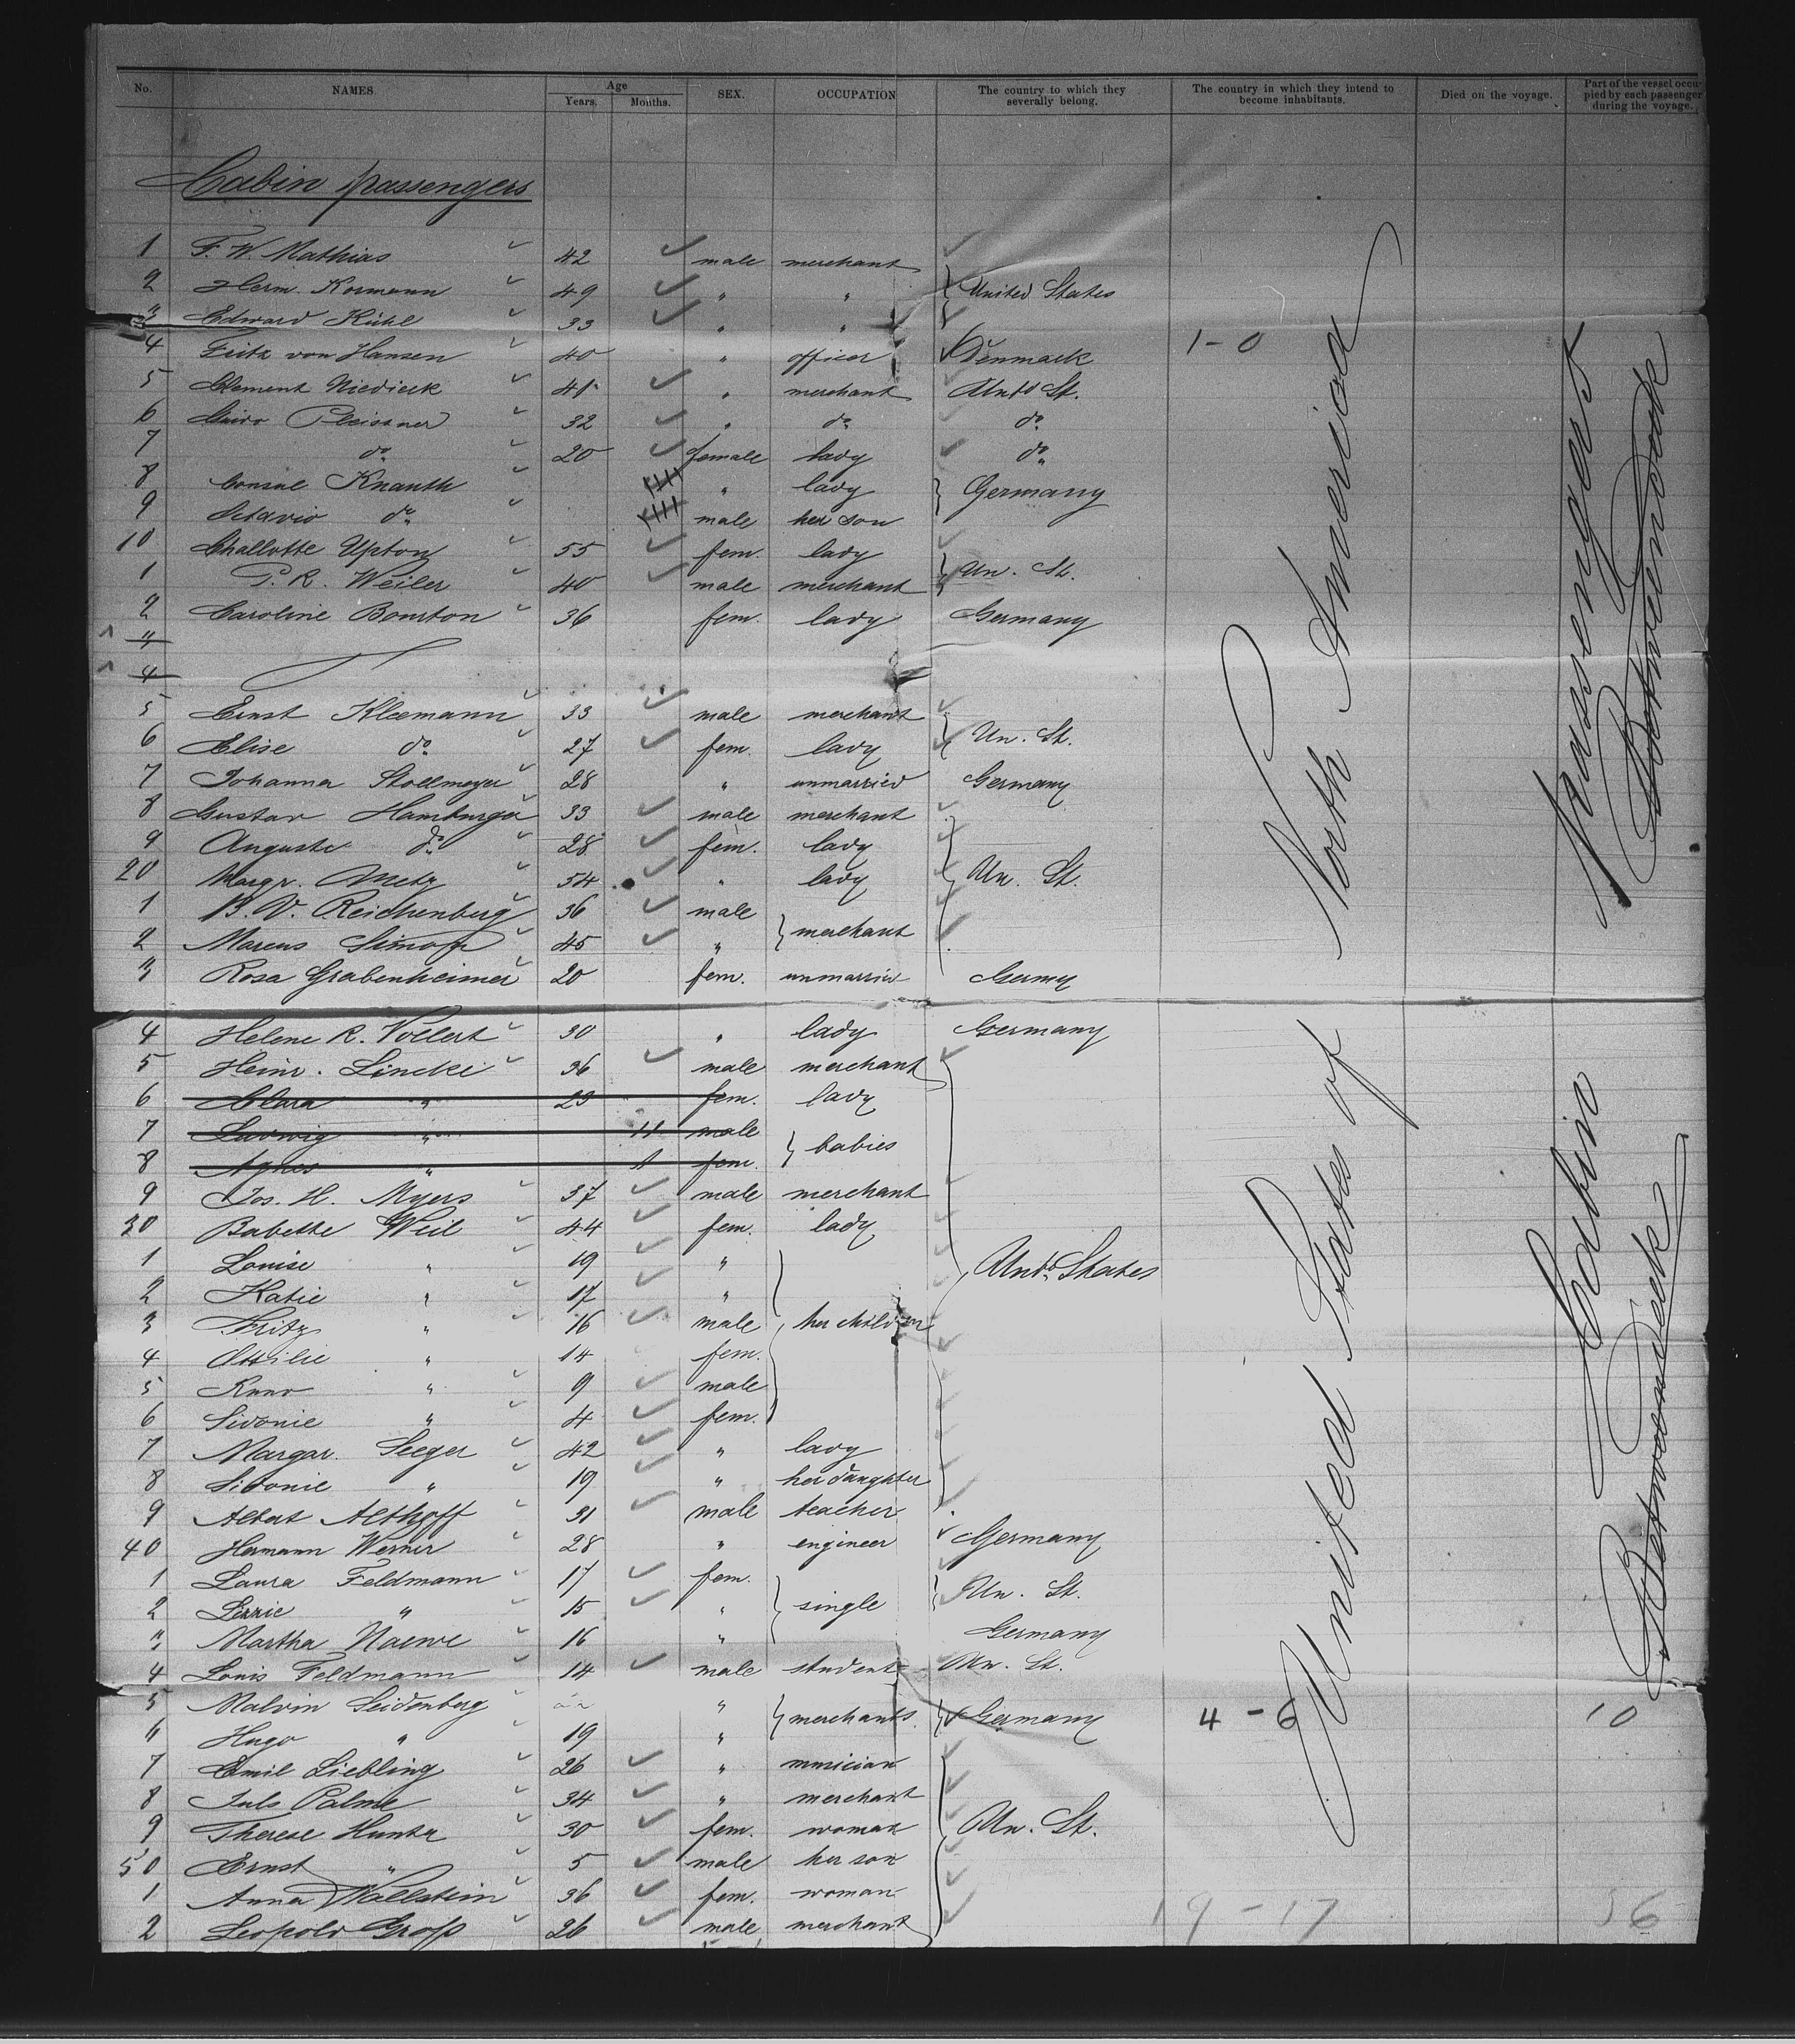 No. NAMES. Age Years. Months. SEX. OCCUPATION The country to which they severally belong. The country in which they intend to become inhabitants. Died on the voyage. Part of the vessel occupied by each passenger during the voyage.
Cabin passengers
1 F. W. Mathias 42 male merchant
2 Herm. Kormann 49 " " United States
3 Edward Kühl 33 " "
4 Fritz von Hansen 40 " officer Denmark 1-0
5 Clement Niedieck 41 " merchant Untd St.
6 Guido Pleissner 32 " do do
7 do 20 female lady do
8 Consul Knauth " lady Germany
9 Octavio do male her son
10 Challotte Upton 55 fem. lady
1 P. R. Weiler 40 male merchant Un. St.
2 Caroline Bourton 36 fem. lady Germany
3
4
5 Ernst Kleemann 33 male merchant
6 Elise do 27 fem. lady Un. St.
7 Johanna Stollmeyer 28 " unmarried Germany
8 Gustav Hamburger 33 male merchant
9 Auguste do 28 fem. lady
20 Margr. Metz 54 " lady Un. St.
1 B. V. Reichenberg 36 male
2 Marcus Simon 45 " merchant
3 Rosa Grabenheimer 20 fem. unmarried Germy
4 Helene R. Vollert 30 " lady Germany
5 Heinr. Lincke 36 male merchant
6 Clara " 29 fem. lady
7 Ludwig " 11 male
8 Agnes " 1 fem. babies
9 Jos. H. Myers 37 male merchant
30 Babette Weil 44 fem. lady
1 Louise " 19 " Untd. States
2 Katie " 17 "
3 Fritz " 16 male her children
4 Ottilie " 14 fem.
5 Kuno " 9 male
6 Sidonie " 4 fem.
7 Margar. Seeger 42 " lady
8 Sidonie " 19 " her daughter
9 Albert Althoff 31 male teacher
40 Hermann Werner 28 " engineer Germany
1 Laura Feldmann 17 fem.
2 Lizzie " 15 " single Un. St.
3 Martha Naewe 16 " Germany
4 Louis Feldmann 14 male student Un. St.
5 Malvin Seidenberg " merchants Germany 4-6 10
6 Hugo " 19 "
7 Emil Liebling 26 " musician
8 Juls Palme 34 " merchant
9 Therese Hunter 30 fem. woman Un. St.
50 Ernst " 5 male her son
1 Anna Wallstein 36 fem. woman
2 Leopold Gross 26 male merchant 19-17 36
United States of North America
Cabin Passengers
Between Deck